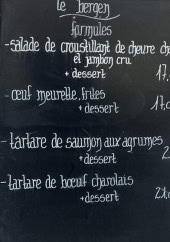 le bergen
formules
-salade de croustillant de chevre cha
et jambon cru
+ dessert 17,
- œuf meurette, frites
+ dessert 17,0
- tartare de saumon aux agrumes
+dessert 2
-tartare de bœuf charolais
+dessert 21,0